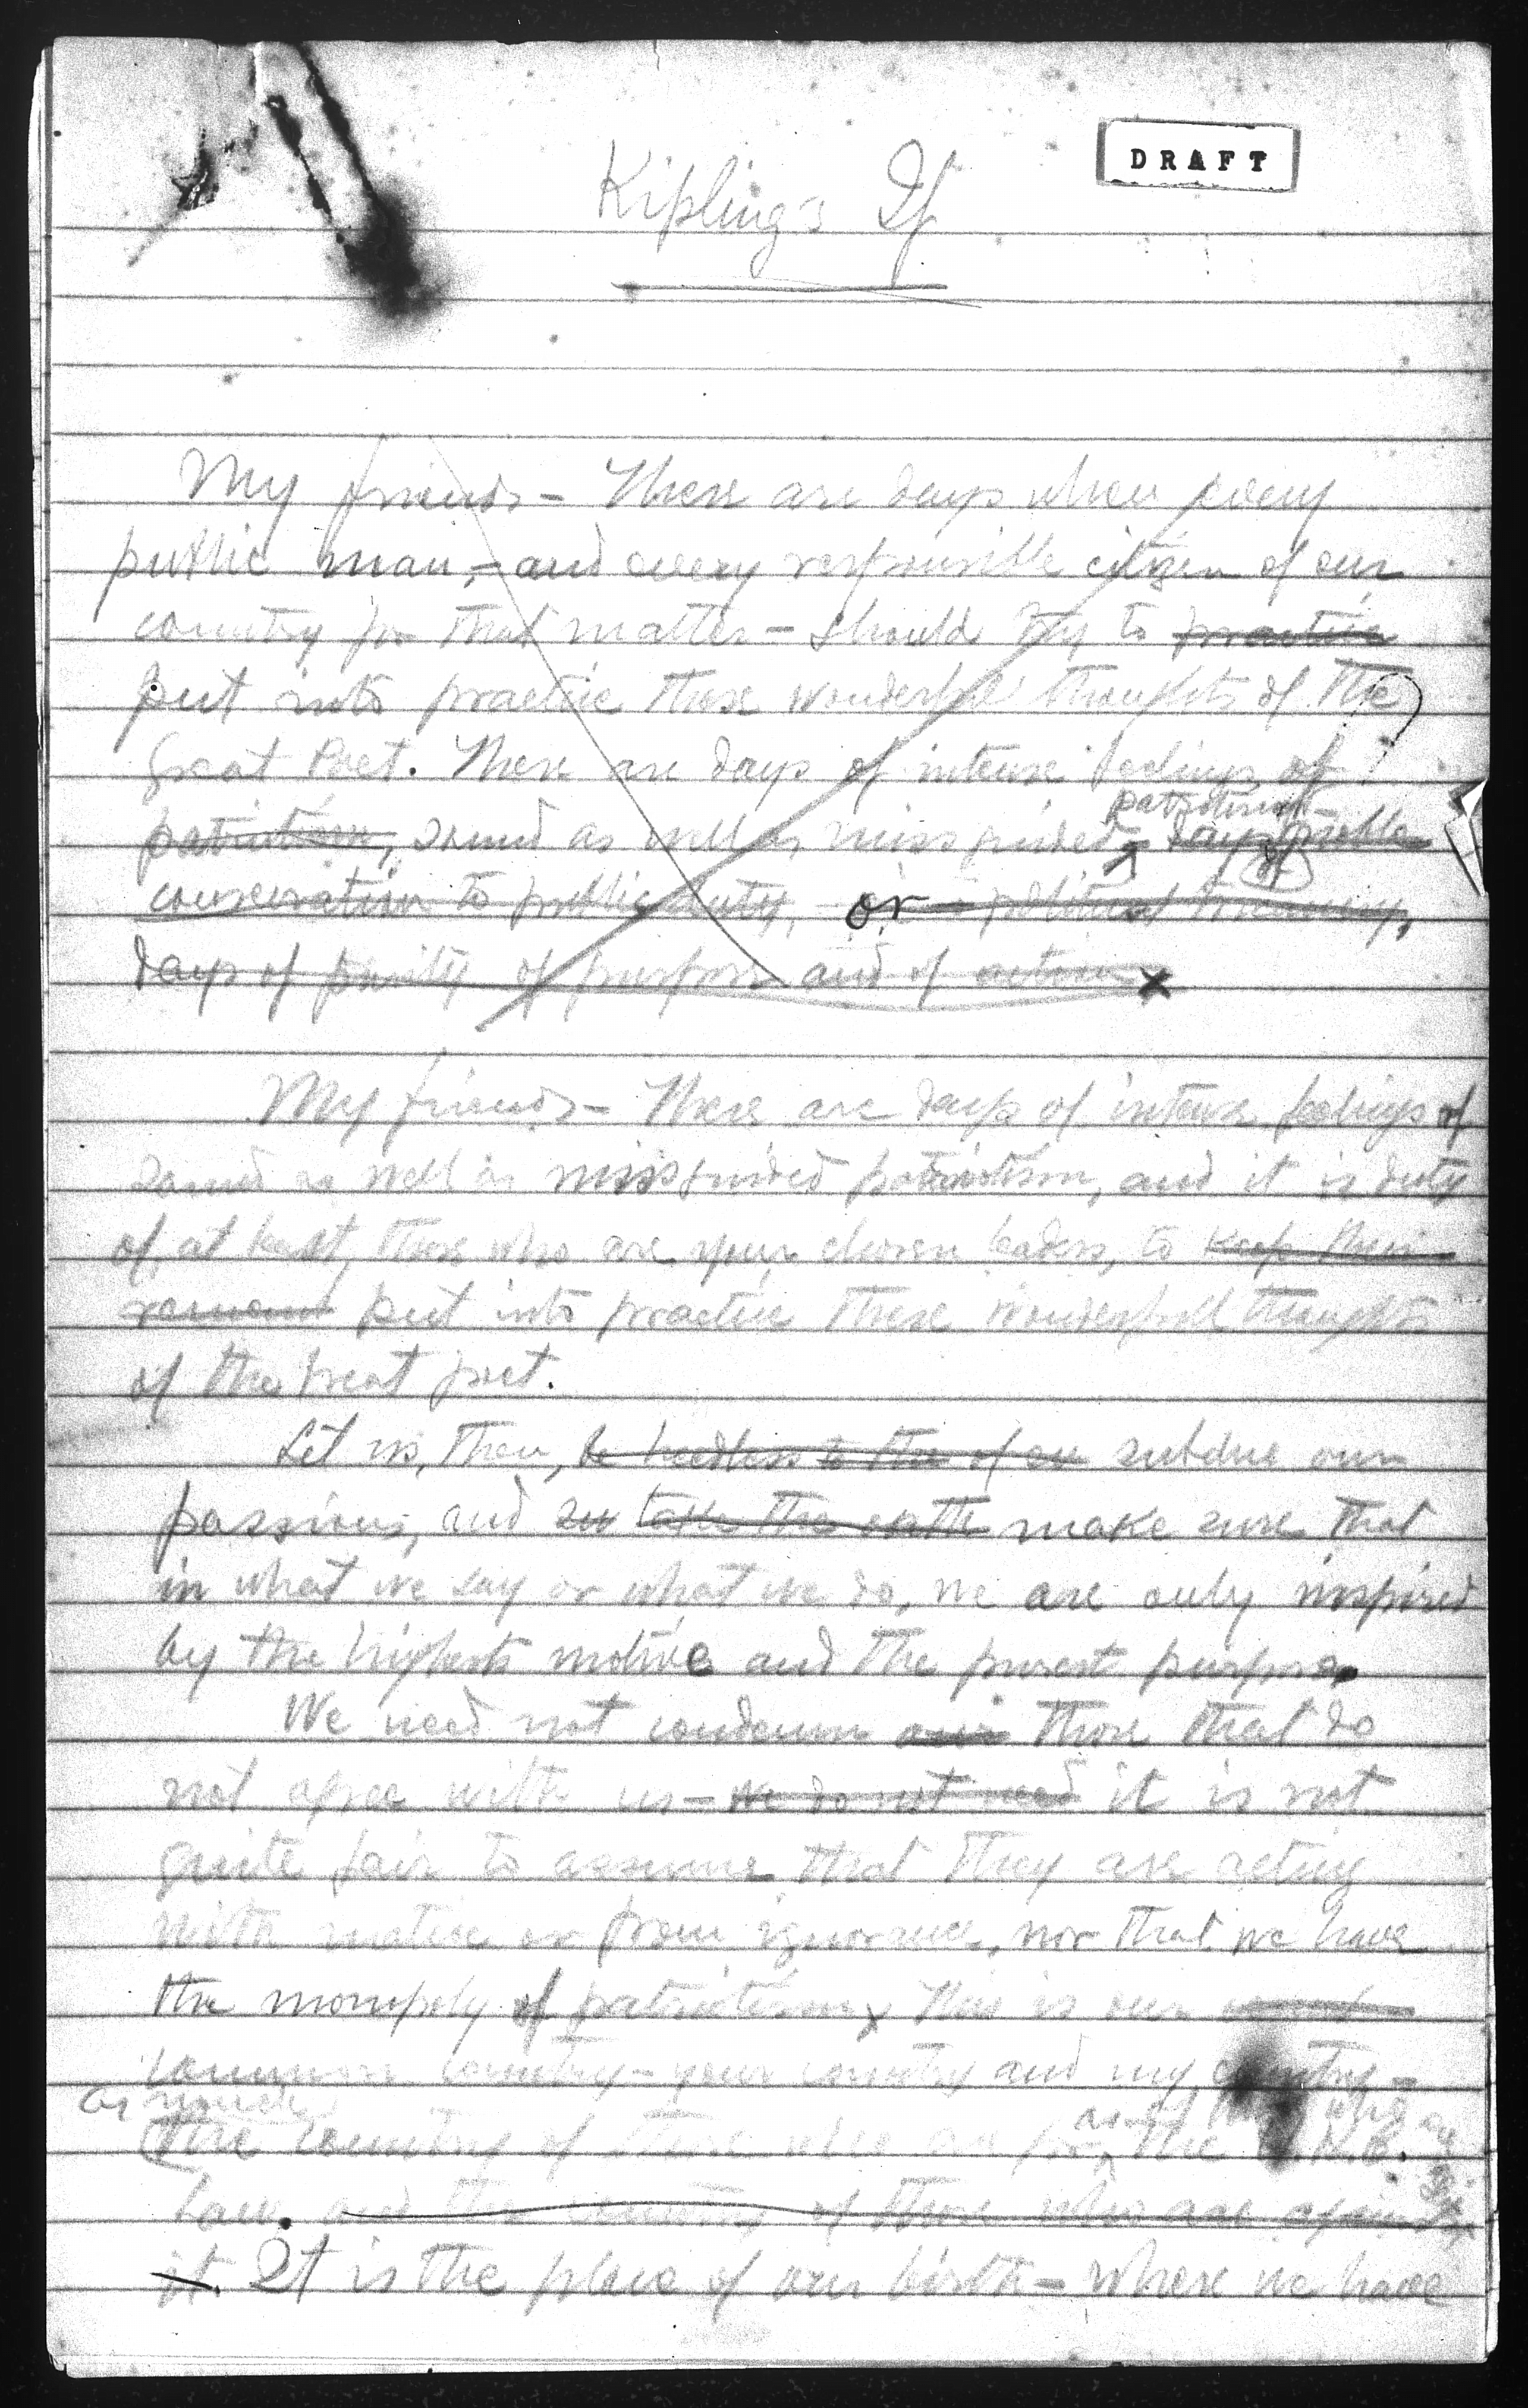 DRAFT
Kipling's If
My friends - There are days when every
public man, - and every responsible citizen of our
country for that matter - should try to practice
put into practice these wonderful thoughts of the
great Poet. There are days of intense feelings of
patriotism -
patriotism, sound as well as missguided - days of noble
consecration to public duty, or political
days of purity of purpose and of action
My friends - There are days of intense feelings of
sound as well as missguided patriotism, and it is duty
of, at least, those who are your chosen leaders, to keep their
put into practice these wonderfull thoughts
of the great poet.
Let us, then, be heedless to the of our subdue our
passions, and see take the oath make sure that
in what we say or what we do, we are only inspired
by the highests motive and the purest purpose.
We need not condemn our those that do
not agree with us - we do not need it is not
quite fair to assume that they are acting
with malice or from ignorance, nor that we have
the monopoly of patriotism. This is our
common country - your country and my country -
as much
as of those who are
the country of those who are for the H.H.C.
Law. and the country of those who are against
it. It is the place of our birth - where we have